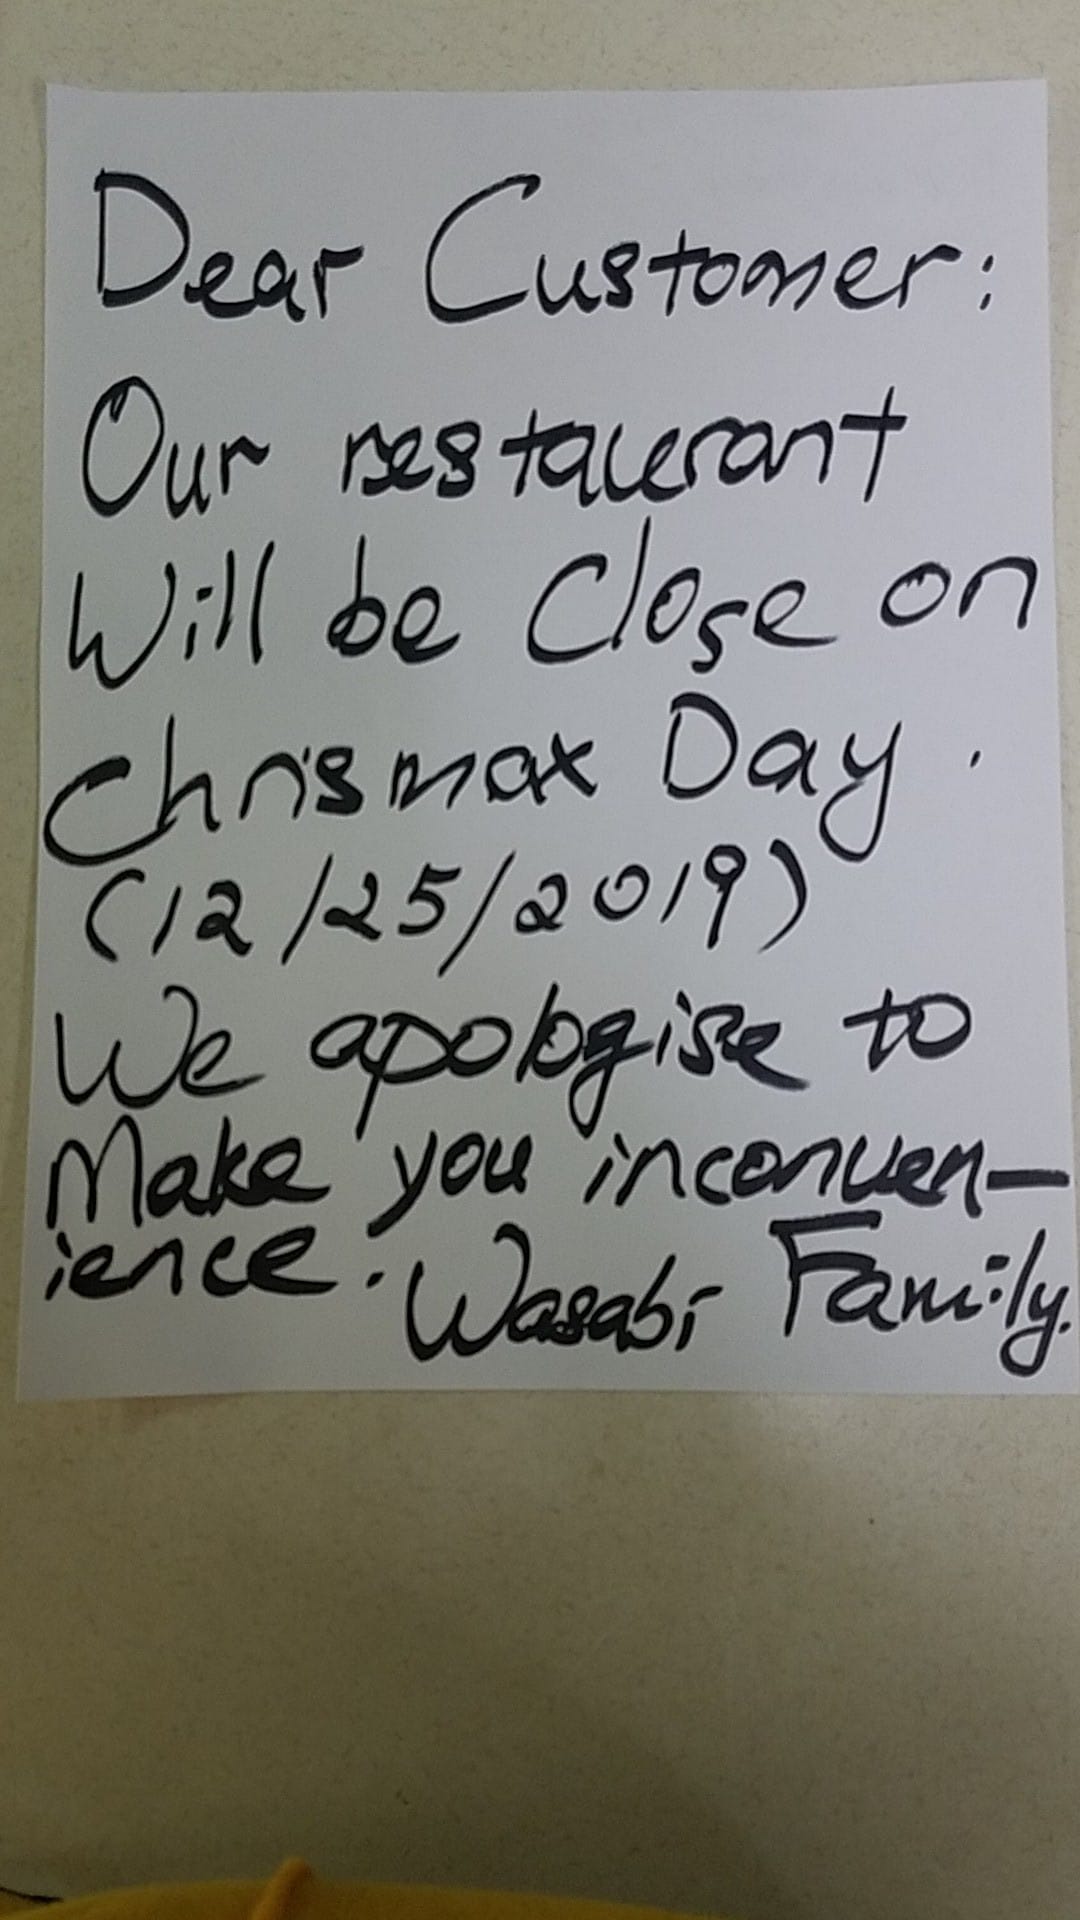 Dear Customer:
Our restaurant
Will be Close on
Chrismax Day.
(12/25/2019)
We apologise to
Make you inconven-
ience. Wasabi Family.